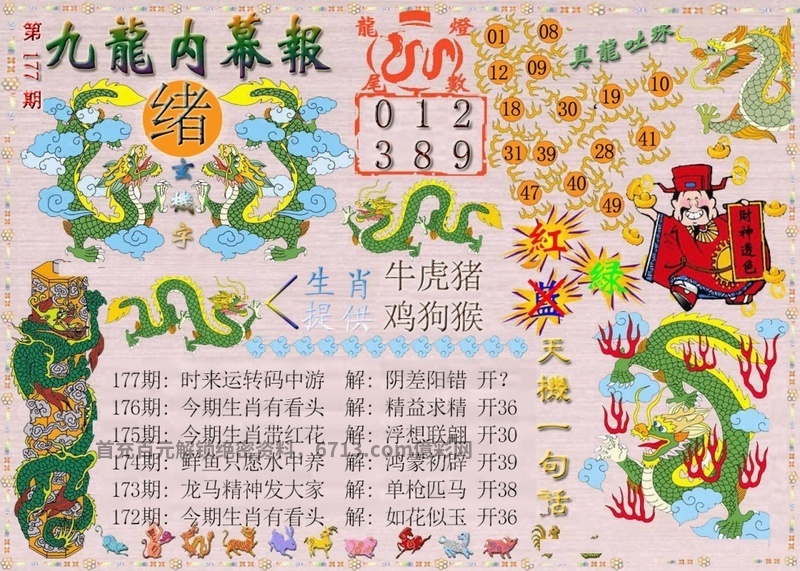 第177期
九龍内幕報
绪
玄機字
龍燈
尾數
0 1 2
3 8 9
真龍吐珠
01 08
12 09
18 30 19 10
31 39 28 41
47 40 49
紅
蓝
绿
財神透色
生肖 牛虎猪
提供 鸡狗猴
天機一句話
177期: 时来运转码中游 解: 阴差阳错 开?
176期: 今期生肖有看头 解: 精益求精 开36
175期: 今期生肖带红花 解: 浮想联翩 开30
首充百元解锁绝密资料,6713.com信彩网
174期: 鲜鱼只愿水中养 解: 鸿蒙初辟 开39
173期: 龙马精神发大家 解: 单枪匹马 开38
172期: 今期生肖有看头 解: 如花似玉 开36